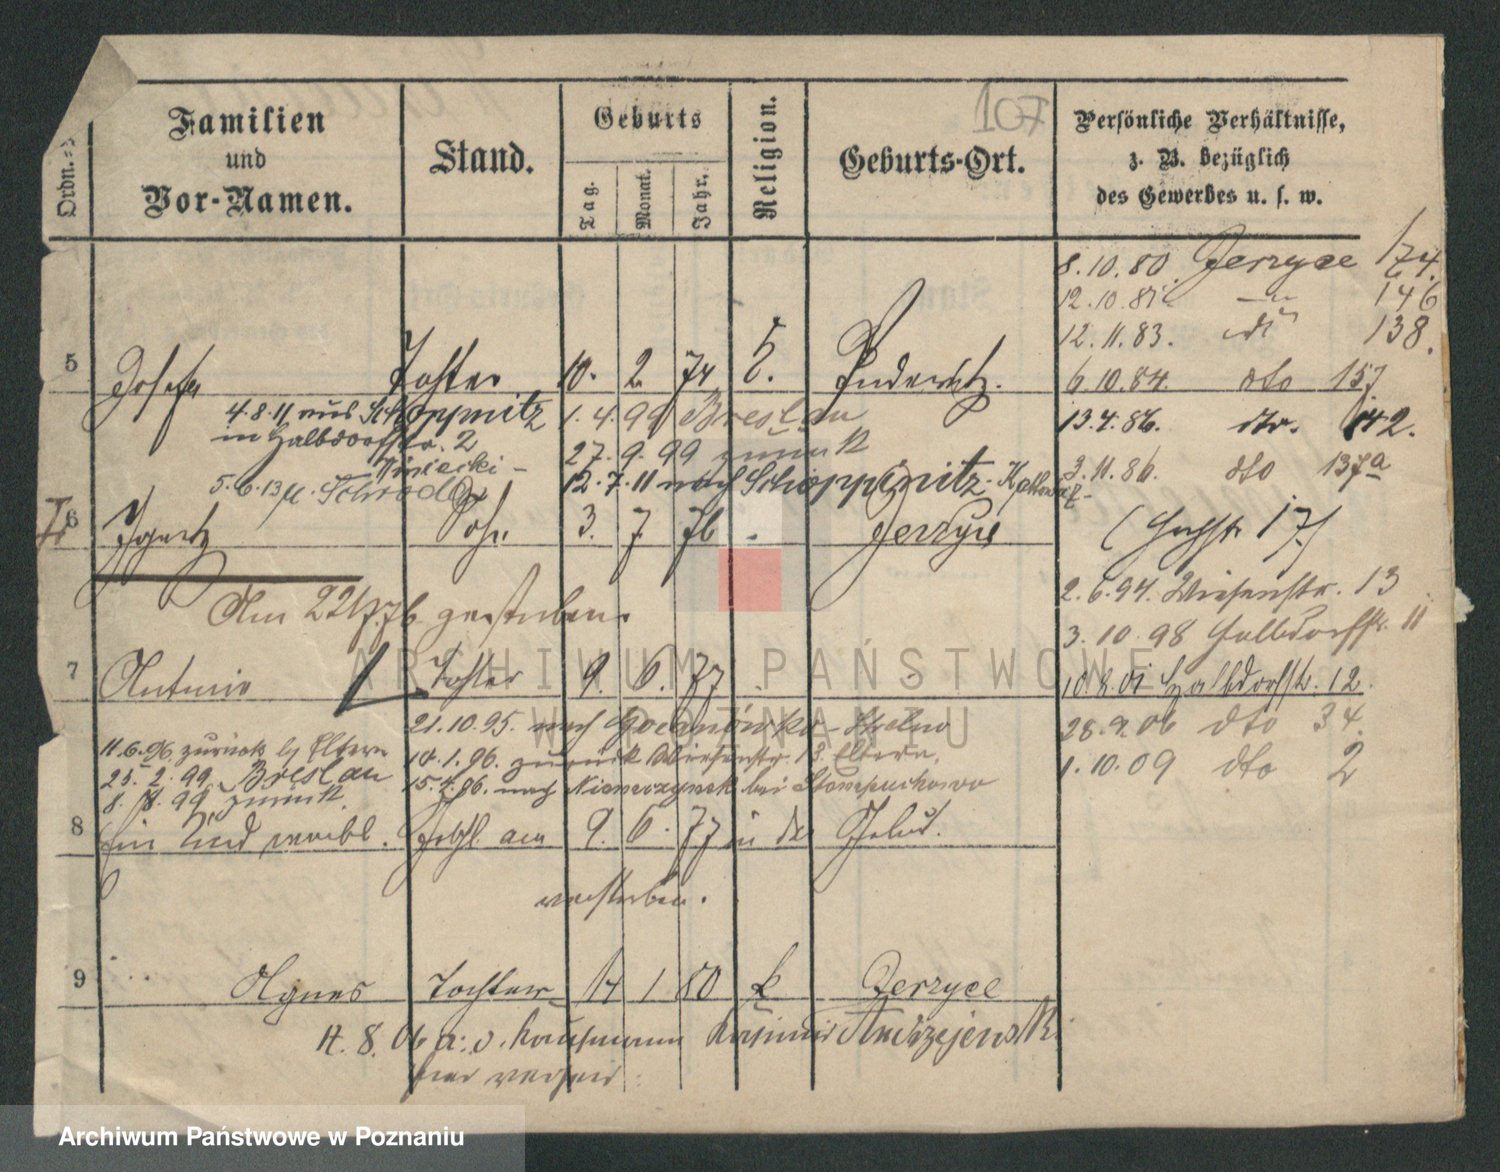 107
Ordn.=
Familien
und
Vor-Namen.
Stand.
Geburts
Tag.
Monat.
Jahr.
Religion.
Geburts-Ort.
Persönliche Verhältnisse,
z. B. bezüglich
des Gewerbes u. s. w.
8.10.80 Jerzyce 174.
12.10.81 146
12.11.83. 138.
5 Josefa Tochter 10. 2. 74 Pudewitz.
6.10.84. dto 157
4.8.11 aus Schoppinitz 1.4.99 Breslau
13.4.86. dto. 142.
in Halbdorfstr. 2 27.9.99 zurück
3.11.86. dto 137a
12.7.11 nach Schoppinitz - Kattowitz
5.6.13
6 Ignatz Sohn 3. 7. 76 Jerzyce
17)
Am 22/7.76 gestorben.
2.6.94. Wiesenstr. 13
3.10.98 Halbdorfstr. 11
7 Antonie Tochter 9. 6. 77
Halbdorfstr. 12.
21.10.95. nach
28.9.06 dto 34.
11.6.96 zurück Eltern
14.1.96. zurück Wiesenstr. 13 Eltern.
25.2.99 Breslau
1.10.09 dto 2
99 zurück.
8 Ein Kind weibl. Gebl. am 9. 6. 77 in der Geburt.
verstorben.
9 Agnes Tochter 14 1 80 k Jerzyce
8.06 a. d. Kaufmann Kasimir Andrzejewski
hier verheir.
ARCHIWUM PAŃSTWOWE
W POZNANIU
Archiwum Państwowe w Poznaniu